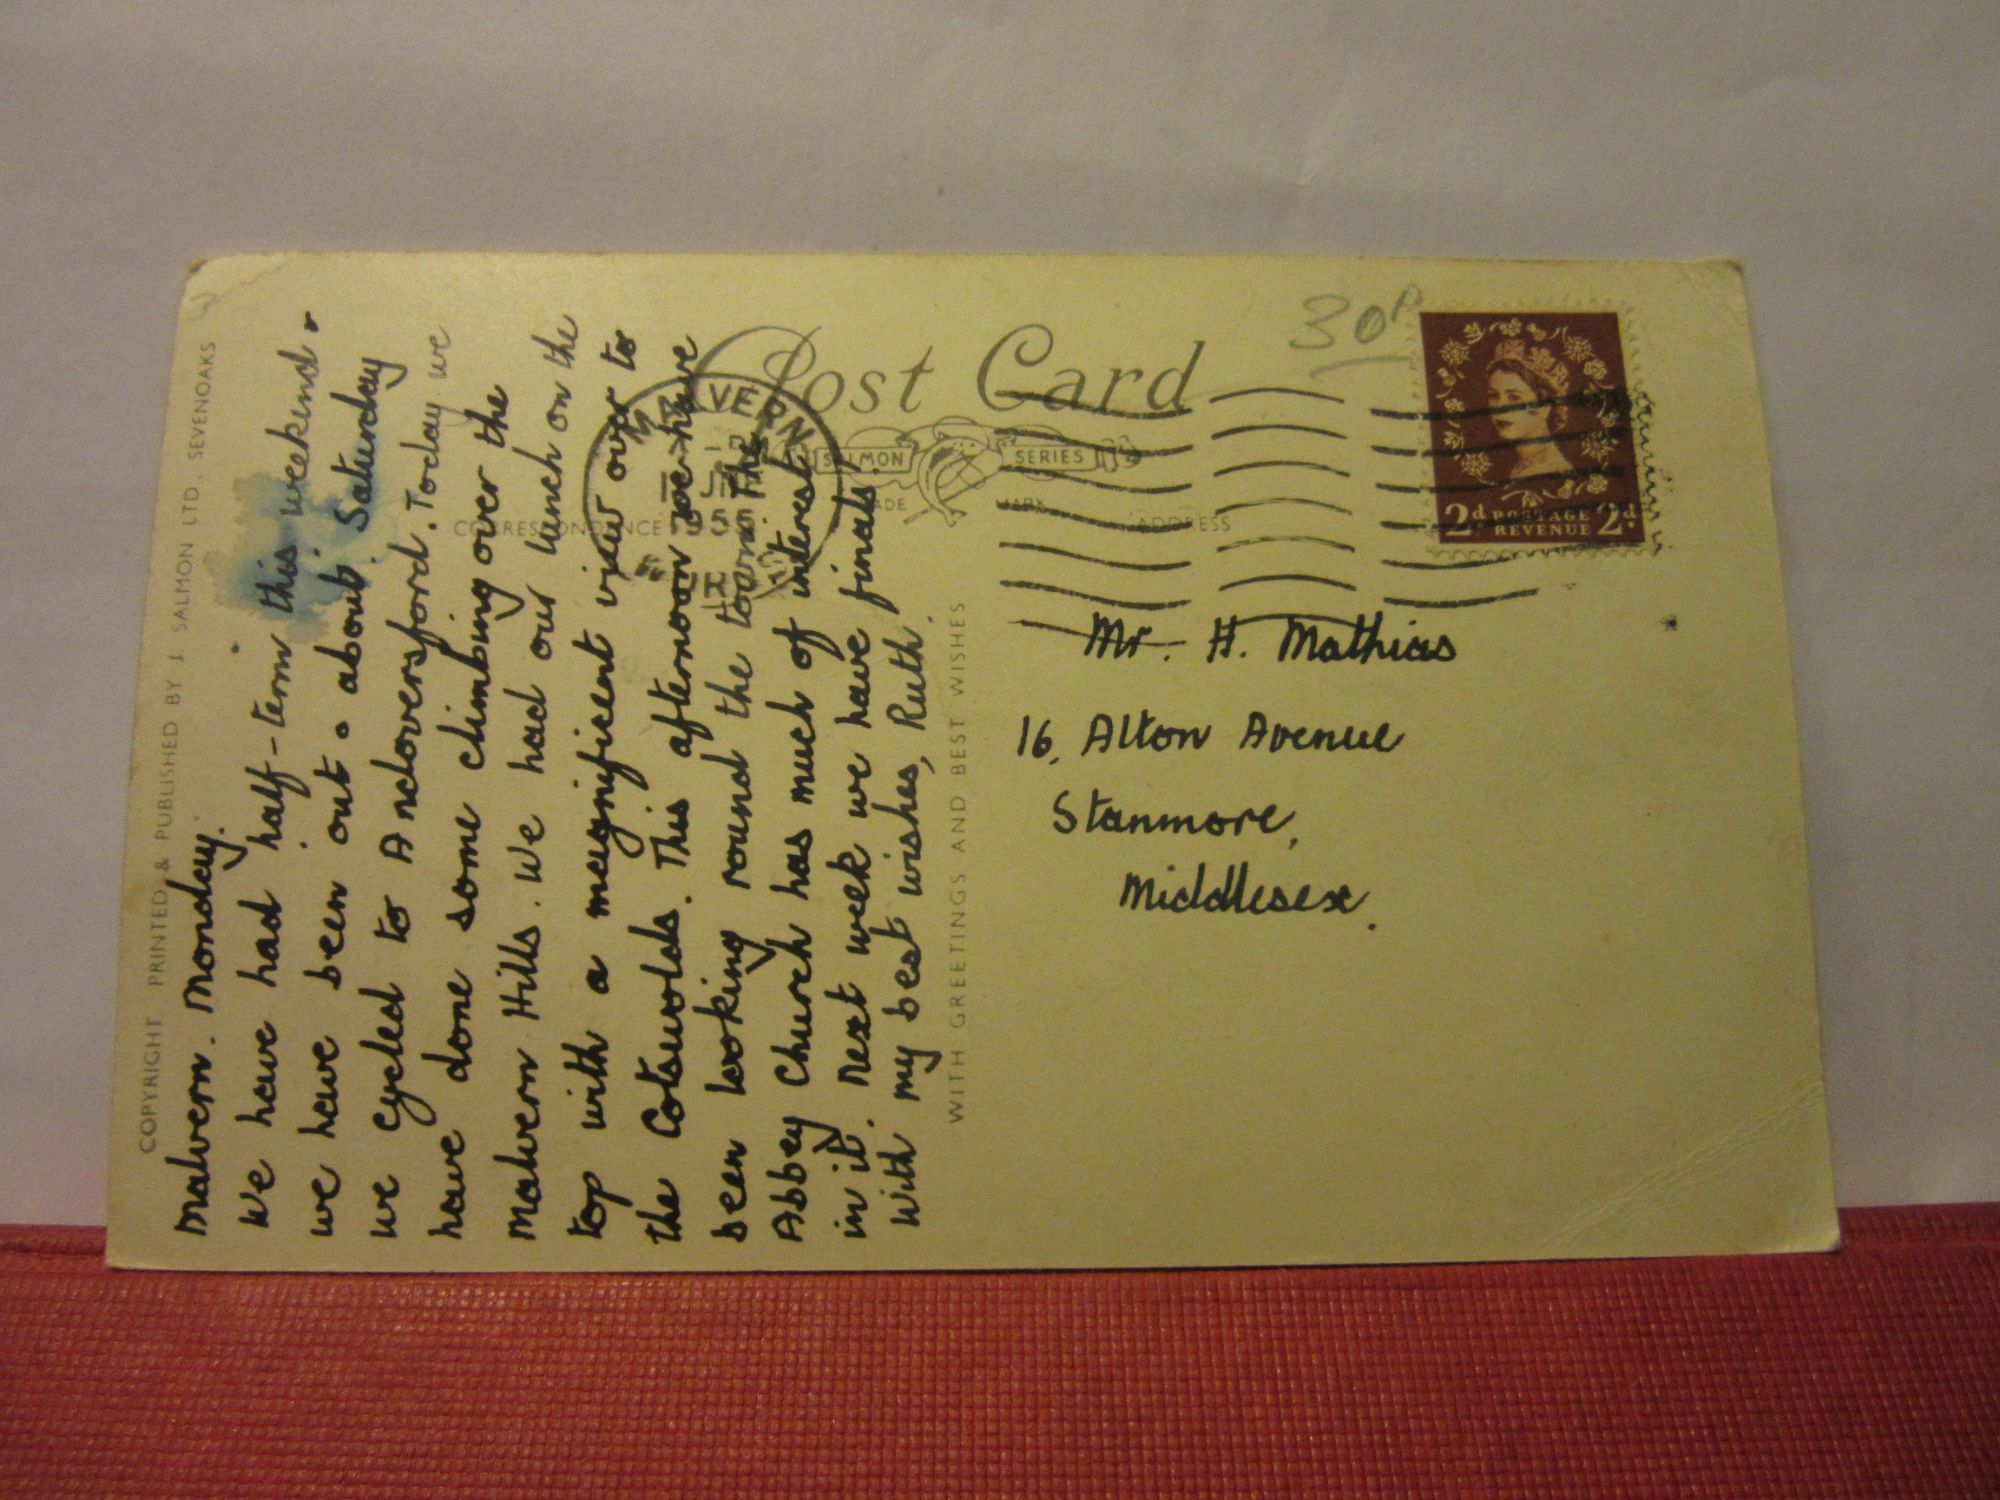 COPYRIGHT PRINTED & PUBLISHED BY J. SALMON LTD. SEVENOAKS
Malvern. Monday.
We have had half-term this weekend &
we have been out & about. Saturday
we cycled to Andoversford. Today we
have done some climbing over the
Malvern Hills. We had our lunch on the
top with a magnificent view over to
the Cotswolds. This afternoon we have
been looking round the town. The
Abbey Church has much of interest
in it. Next week we have finals!
With my best wishes, Ruth.
WITH GREETINGS AND BEST WISHES
Post Card
SALMON SERIES
TRADE MARK
CORRESPONDENCE
ADDRESS
MALVERN
1955
30P
2d POSTAGE REVENUE 2d
Mr. H. Mathias
16, Alton Avenue
Stanmore,
Middlesex.